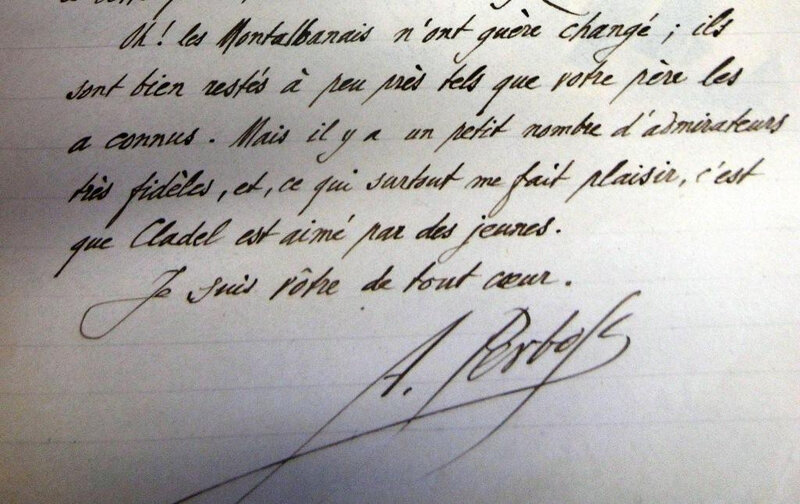 Ah! les Montalbanais n'ont guère changé; ils
sont bien restés à peu près tels que votre père les
a connus. Mais il y a un petit nombre d'admirateurs
très fidèles, et, ce qui surtout me fait plaisir, c'est
que Cladel est aimé par des jeunes.
Je suis vôtre de tout cœur.
A. Perbosc